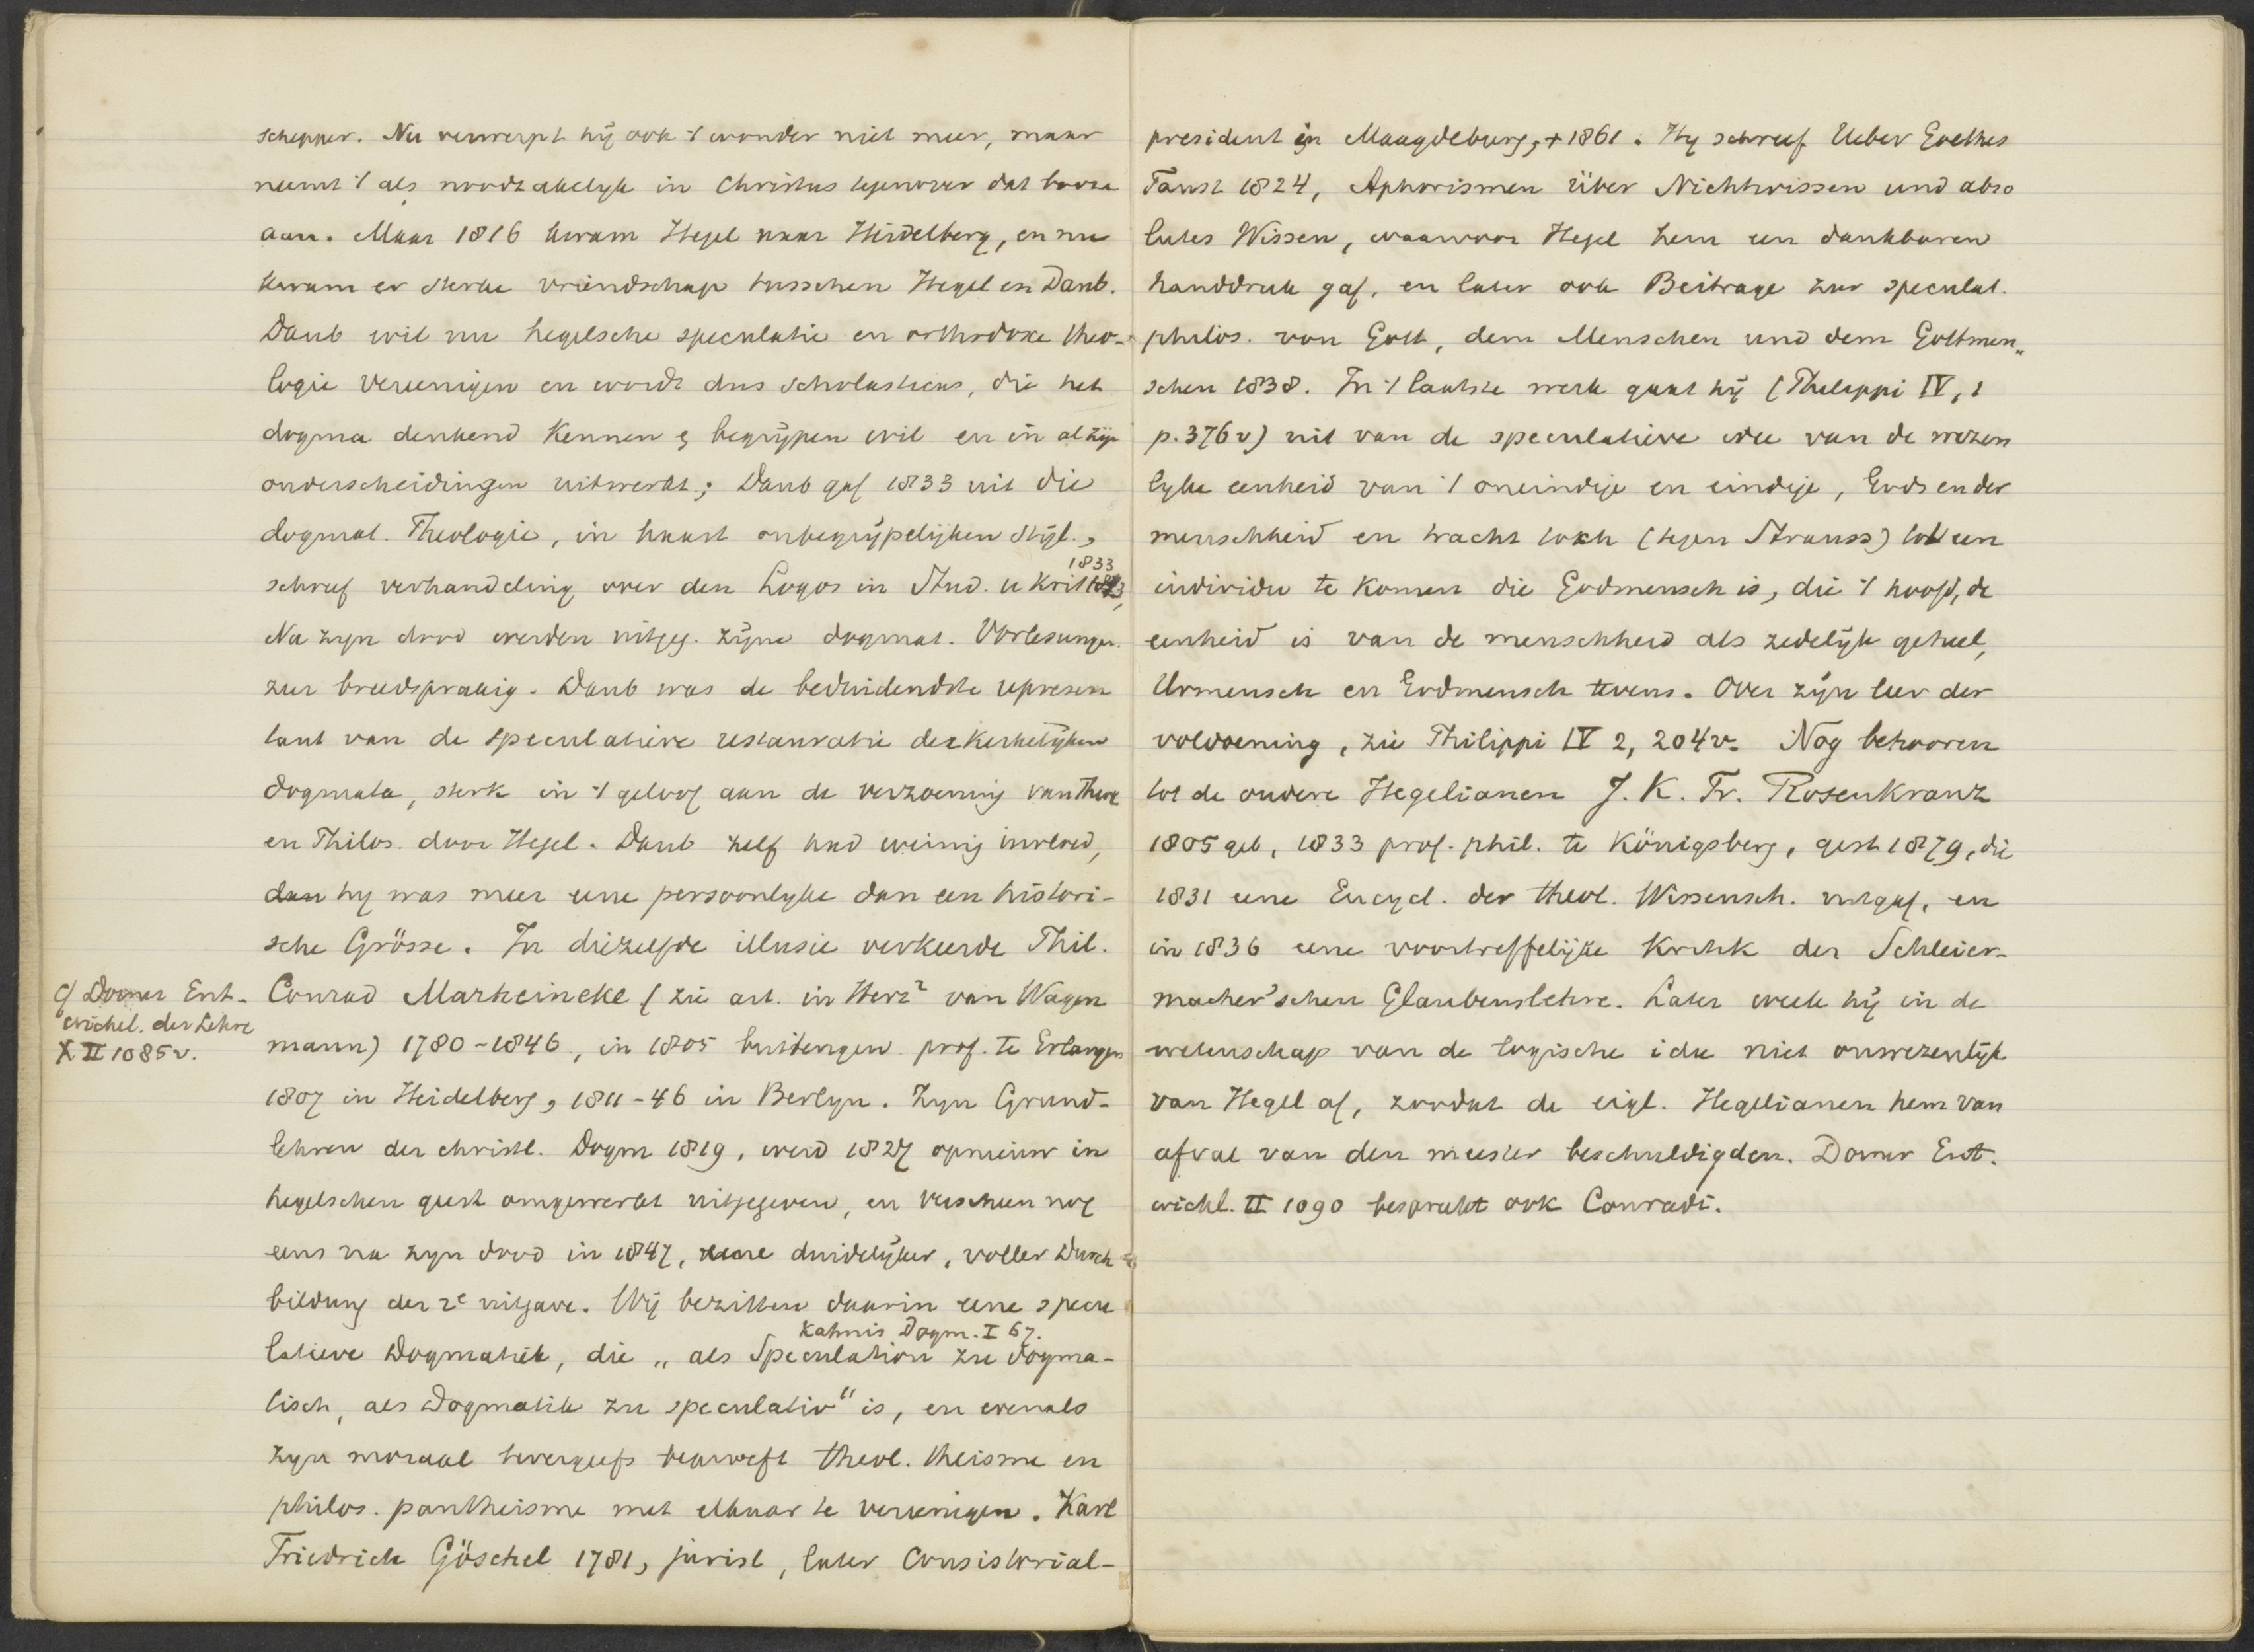 schepper. Nu verwerpt hij ook 't wonder niet meer, maar
neemt 't als noodzakelyk in Christus tegenover dat booze
aan. Maar 1816 kwam Hegel naar Heidelberg, en nu
kwam er sterke vriendschap tusschen Hegel en Daub.
Daub wil nu hegelsche speculatie en orthodoxe theo-
logie vereenigen en wordt dus scholasticus, die het
dogma denkend kennen & begrijpen wil en in al zijn
onderscheidingen uitwerkt; Daub gaf 1833 uit die
dogmat. Theologie, in haast onbegrijpelijken stijl.,
1833
schreef verhandeling over den Logos in Stud. u Krit
Na zijn dood werden uitgeg. zijne dogmat. Vorlesungen.
zeer breedsprakig. Daub was de beduidendste represen
tant van de speculatieve restauratie der kerkelijken
dogmata, sterk in 't geloof aan de verzoening van Theol
en Philos. door Hegel. Daub zelf had weinig invloed,
dan hy was meer eene persoonlyke dan een histori-
sche Grösse. In diezelfde illusie verkeerde Phil.
Conrad Marheineke (zie art. in Herz² van Wagen
mann) 1780-1846, in 1805 buitengew. prof. te Erlangen
1807 in Heidelberg, 1811-46 in Berlyn. Zyn Grund-
lehren der christl. Dogm 1819, werd 1827 opnieuw in
hegelschen geest omgewerkt uitgegeven, en verscheen nog
eens na zyn dood in 1847, duidelijker, voller Durch-
bildung der 2e uitgave. Wij bezitten daarin eene specu
Kahnis Dogm. I 67.
latieve Dogmatiek, die „als Speculation zu dogma-
tisch, als Dogmatik zu speculativ" is, en evenals
zyn moraal tevergeefs beproeft theol. theisme en
philos. pantheisme met elkaar te vereenigen. Karl
Friedrich Göschel 1781, jurist, later Consistorial-
cf Dorner Ent-
wickel. der Lehre
X II 1085v.
president in Maagdeburg, + 1861. Hy schreef Ueber Goethes
Faust 1824, Aphorismen über Nichtwissen und abso
lutes Wissen, waarvoor Hegel hem een dankbaren
handdruk gaf, en later ook Beitrage zur speculat.
philos. von Gott, dem Menschen und dem Gottmen„
schen 1838. In 't laatste werk gaat hij (Philippi IV, 1
p. 376v) uit van de speculatieve idee van de wezen
lyke eenheid van 't oneindige en eindige, Gods en der
menschheid en tracht toch (tegen Strauss) tot een
individu te komen die Godmensch is, die 't hoofd, de
eenheid is van de menschheid als zedelijk geheel,
Urmensch en Godmensch tevens. Over zijn leer der
voldoening, zie Philippi IV 2, 204v. Nog behooren
tot de oudere Hegelianen J. K. Fr. Rosenkranz
1805 geb, 1833 prof. phil. te Königsberg, gest 1879, die
1831 eene Encycl. der theol. Wissensch. uitgaf, en
in 1836 eene voortreffelijke Kritik der Schleier-
macher'schen Glaubenslehre. Later week hij in de
wetenschap van de logische idee niet onwezenlijk
van Hegel af, zoodat de eigl. Hegelianen hem van
afval van den meester beschuldigden. Dorner Ent.
wickl. II 1090 bespreekt ook Conradi.